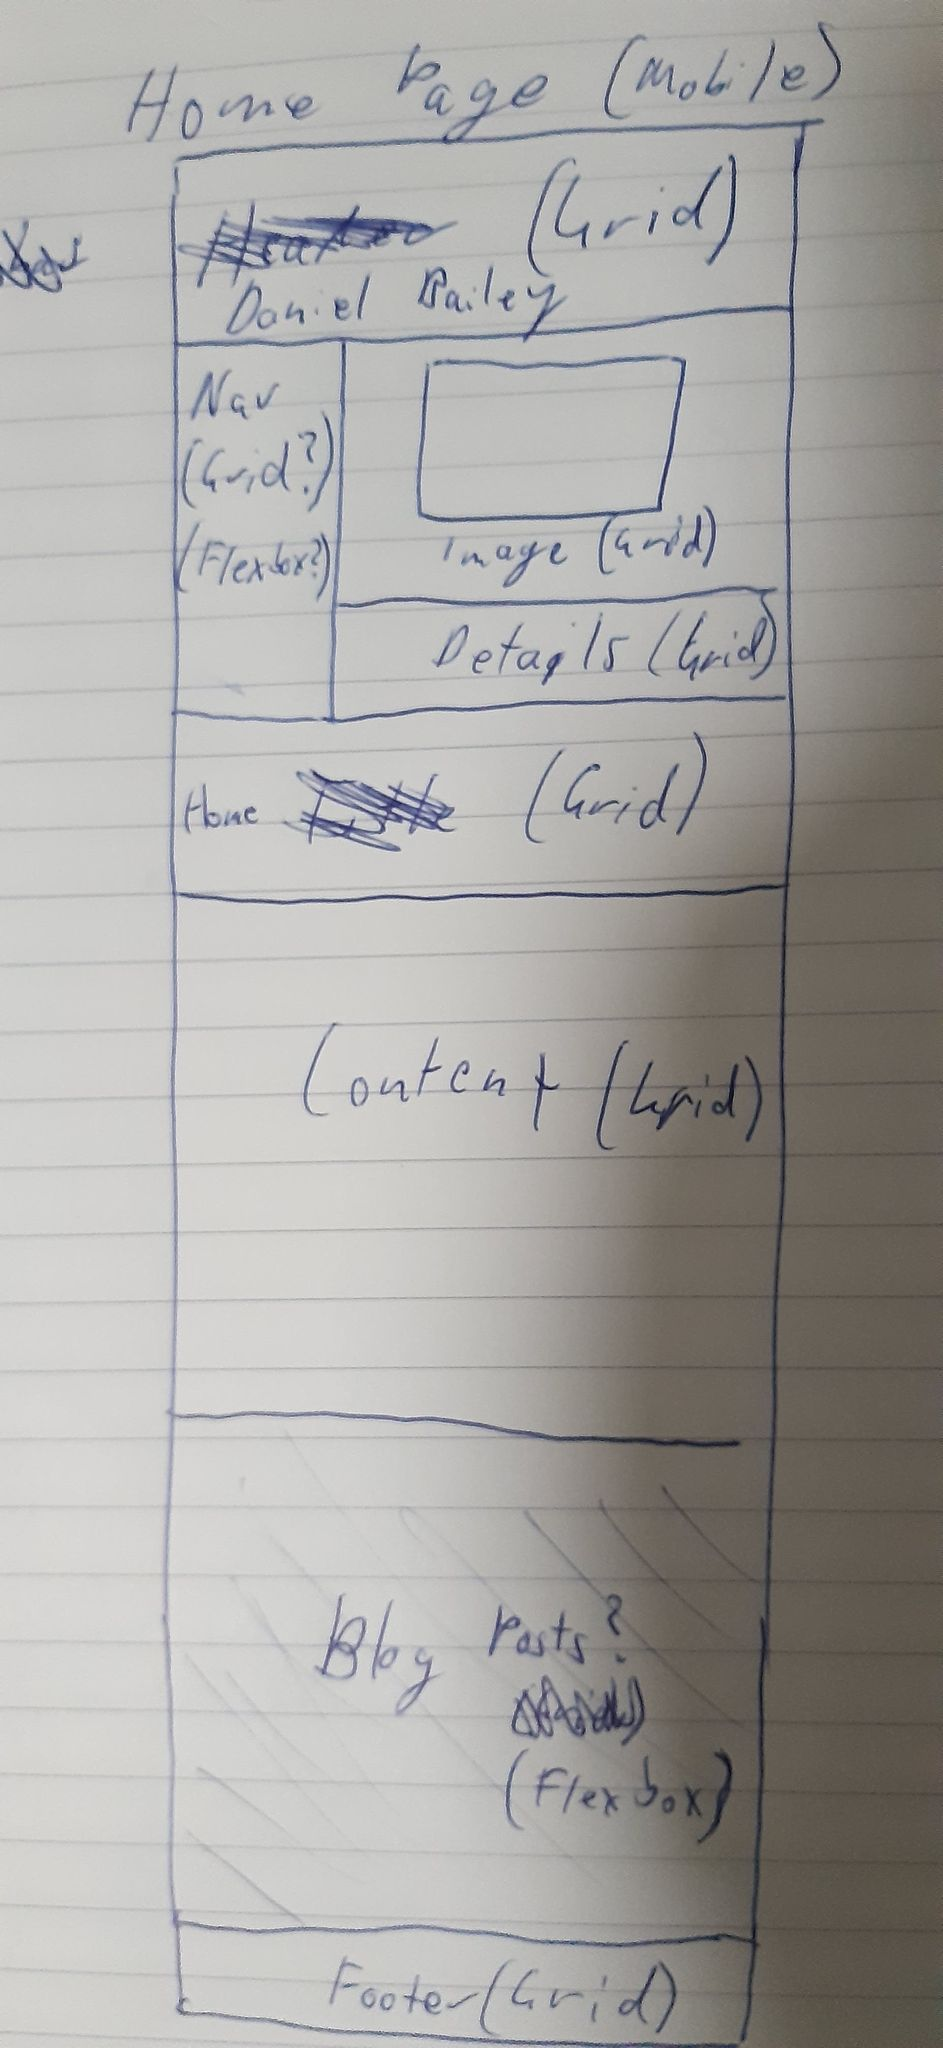 Home Page (Mobile)
(Grid)
Daniel Bailey
Nav
(Grid?)
(Flexbox?)
Image (Grid)
Details (Grid)
Home (Grid)
Content (Grid)
Blog Posts?
(Flexbox)
Footer (Grid)